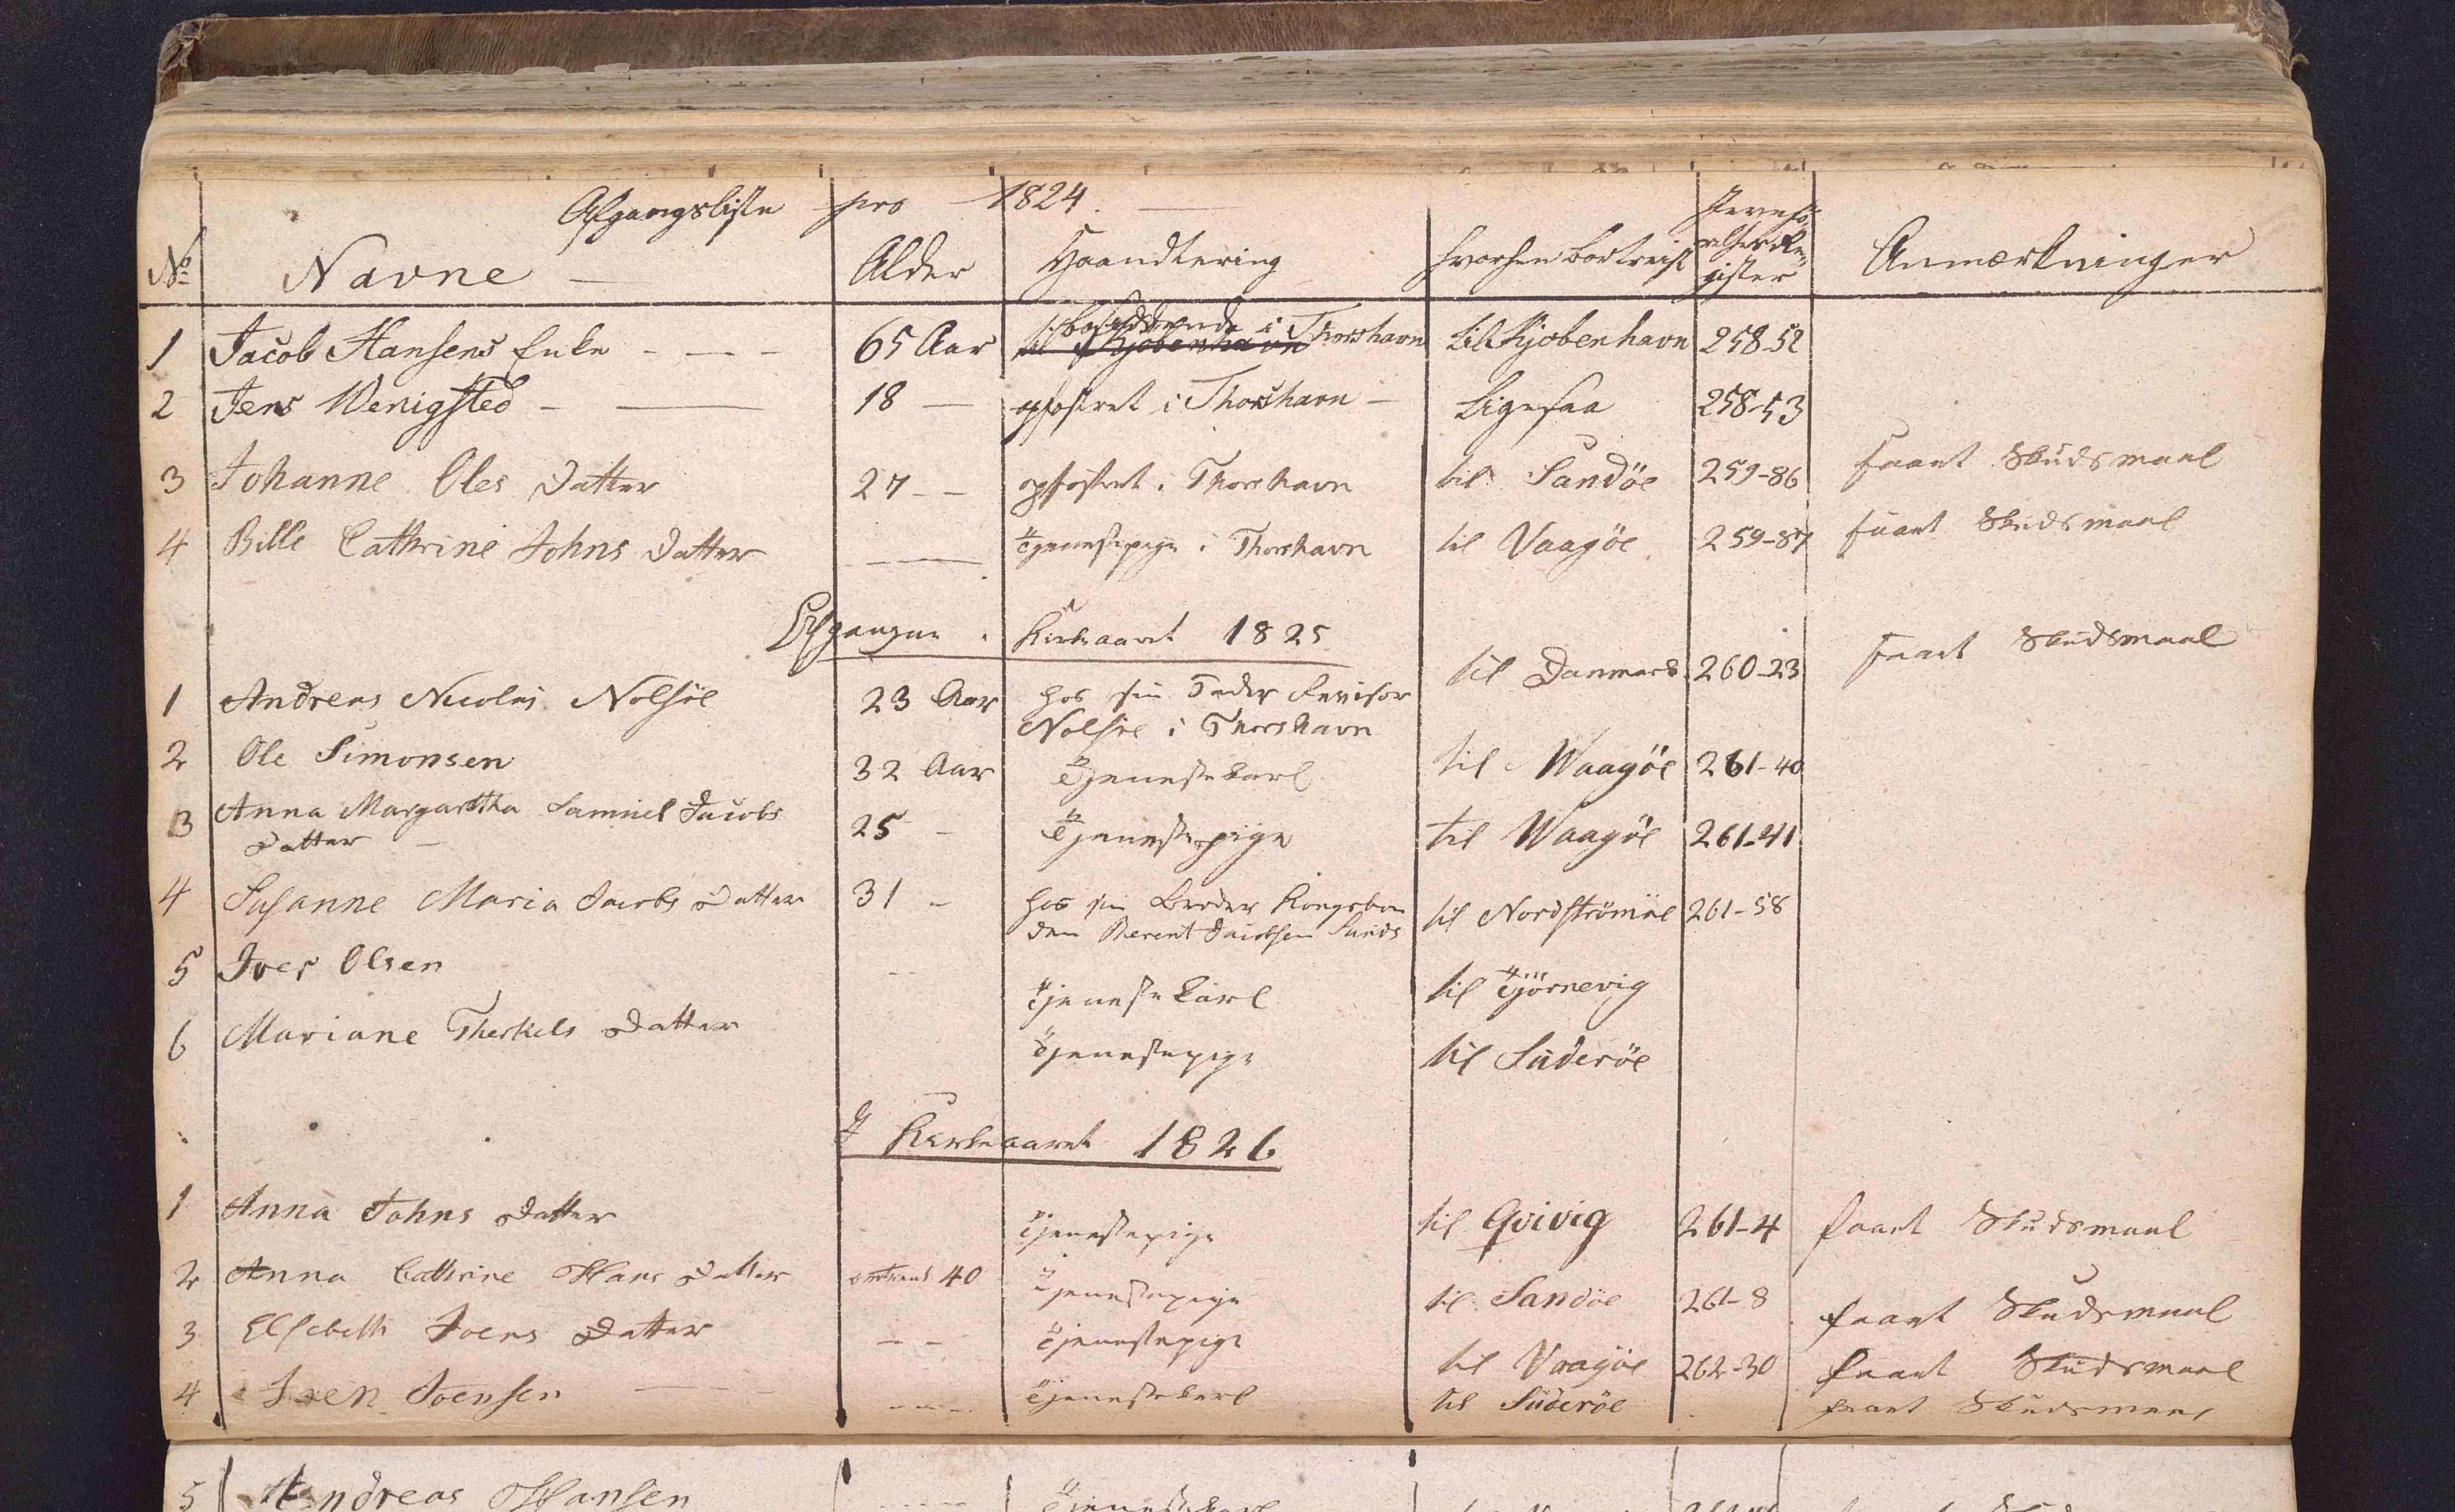 Afgangsliste pro 1824.
No. Navne Alder Haandtering hvorhen bortreist Jevnförelses Register Anmærkninger
1 Jacob Hansens Enke 65 Aar boesiddende i Thorshavn til Kjøbenhavn 258-52
2 Jens Wenigsted 18 opfostret i Thorshavn Ligesaa 258-53
3 Johanne Oles Datter 27 opfostret i Thorshavn til Sandöe 259-86 faaet Skudsmaal
4 Bille Cathrine Johns Datter Tjenestepige i Thorshavn til Vaagöe 259-87 faaet Skudsmaal
Afgangne i Kirkeaaret 1825
1 Andreas Nicolai Nolsöe 23 Aar hos sin Fader Revisor til Danmark 260-23 faaet Skudsmaal
Nolsöe i Thorshavn
2 Ole Simonsen 32 Aar Tjenestekarl til Waagöe 261-40
3 Anna Margaretha Samuel Jacobs 25 Tjenestepige til Waagöe 261-41
Datter
4 Susanne Maria Jacobs Datter 31 hos sin Broder Kongsbon til Nordströmöe 261-58
den Berent Jacobsen Sunds
5 Joes Olsen Tjenestekarl til Tjörnevig
6 Mariane Therkels Datter Tjenestepige til Suderöe
I Kirkeaaret 1826
1 Anna Johns Datter Tjenestepige til Qvivig 261-4 faaet Skudsmaal
2 Anna Cathrine Hans Datter omtrent 40 Tjenestepige til Sandöe 261-8 faaet Skudsmaal
3 Elsebeth Joens Datter Tjenestepige til Vaagöe 262-30 faaet Skudsmaal
4 Joen Joensen Tjenestekarl til Suderöe faaet Skudsmaal
5 Andreas Hansen Tjenestekarl